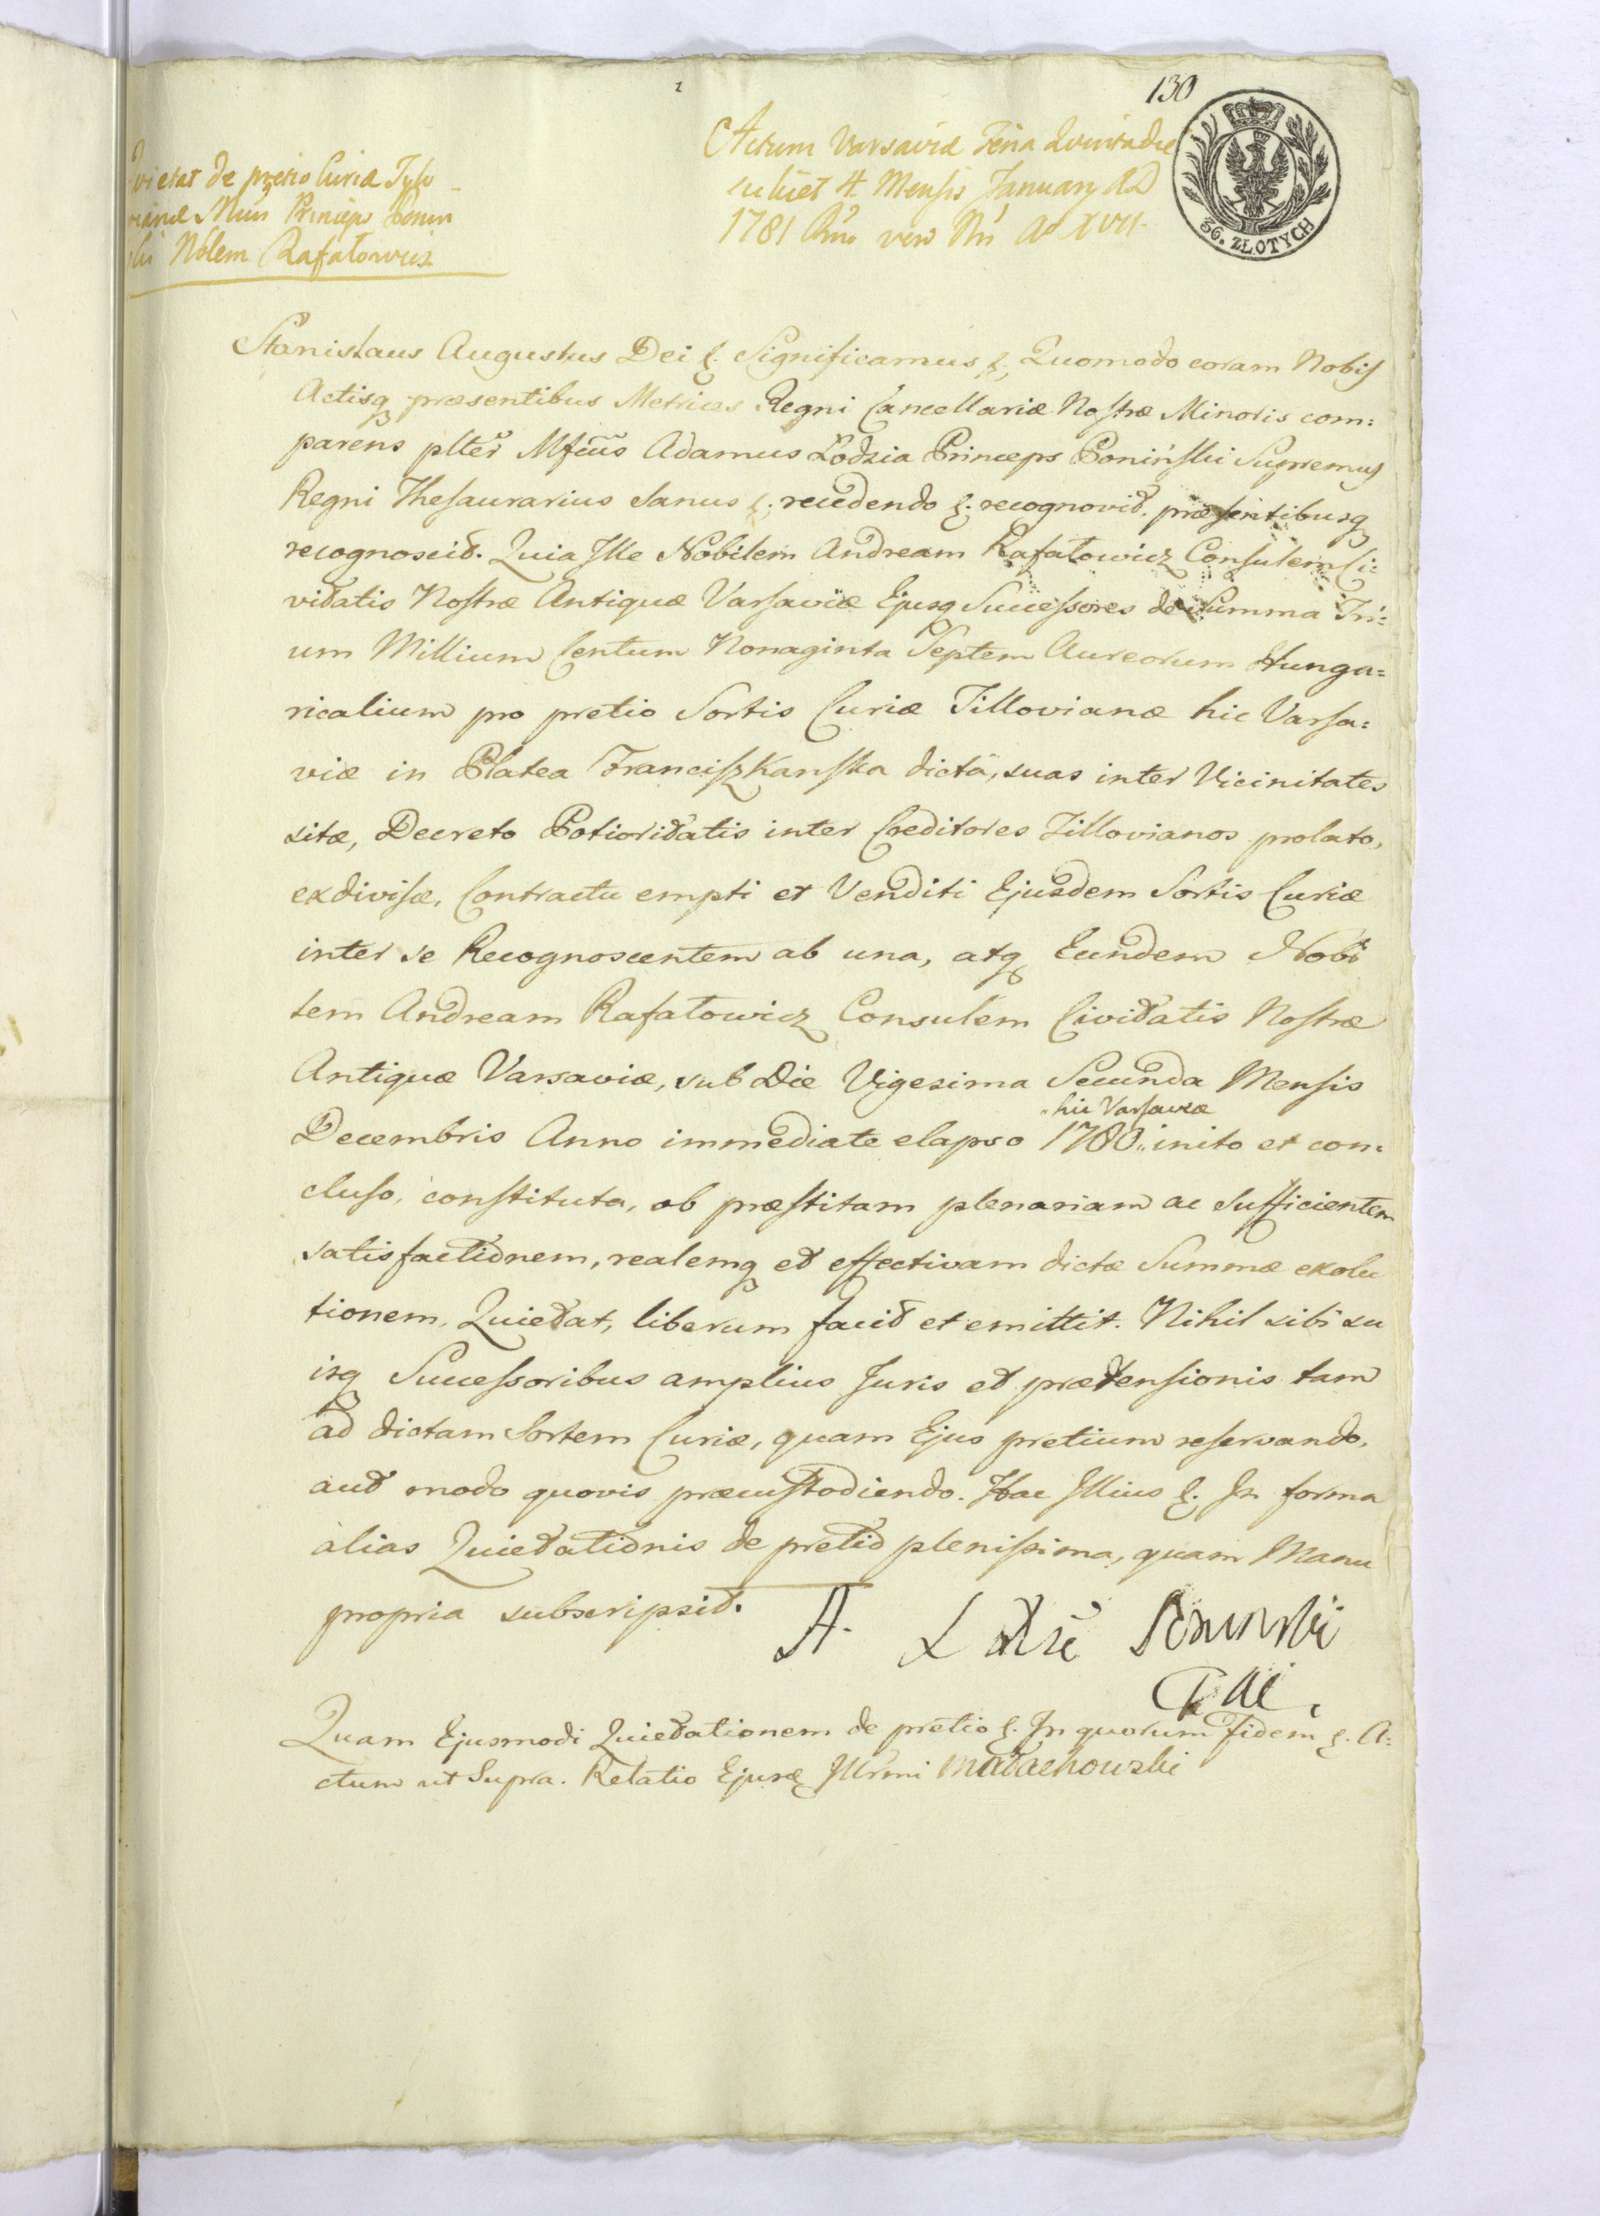 130
Actum Varsaviæ Feria Quinta die
scilicet 4. Mensis January AD
1781 Rńi vero Nri Ao XVII.
36. ZŁOTYCH
de pretio Curiæ Tylo
Princeps Ponin
Noblem Rafałowicz
Stanislaus Augustus Dei &. Significamus &. Quomodo coram Nobis
Actisq præsentibus Metrices Regni Cancellariæ Nostræ Minoris com:
parens plter Mfcus Adamus Łodzia Princeps Poniński Supremus
Regni Thesaurarius Sanus &. recedendo &. recognovit. præsentibusq
recognoscit. Quia Ille Nobilem Andream Rafałowicz Consulem Ci:
vitatis Nostræ Antiquæ Varsaviæ Ejusq Successores de Summa Tri:
um Millium Centum Nonaginta Septem Aureorum Hunga:
ricalium pro pretio Sortis Curiæ Tillovianæ hic Varsa:
viæ in Platea Franciszkanska dicta, suas inter Vicinitates
sitæ, Decreto Potioritatis inter Creditores Tillovianos prolato,
exdivisæ, Contractu empti et Venditi Ejusdem Sortis Curiæ
inter se Recognoscentem ab una, atq Eundem Nobi
lem Andream Rafałowicz Consulem Civitatis Nostræ
Antiquæ Varsaviæ, sub Die Vigesima Secunda Mensis
hic Varsaviæ
Decembris Anno immediate elapso 1780. inito et con:
cluso, constituta, ob præstitam plenariam ac sufficientem
satisfactionem, realemq et effectivam dictæ Summæ exolu
tionem, Quietat, liberum facit et emittit. Nihil sibi su
isq Successoribus amplius Juris et prætensionis tam
ad dictam Sortem Curiæ, quam Ejus pretium reservando,
aut modo quovis præcustodiendo. Hac Illius &. In forma
alias Quietationis de pretio plenissima, quam Manu
propria subscripsit.
A. Łodzia Poninski
Quam Ejusmodi Quietationem de pretio &. In quorum Fidem &. A:
ctum ut Supra. Relatio Ejusdem Illrmi Małachowski